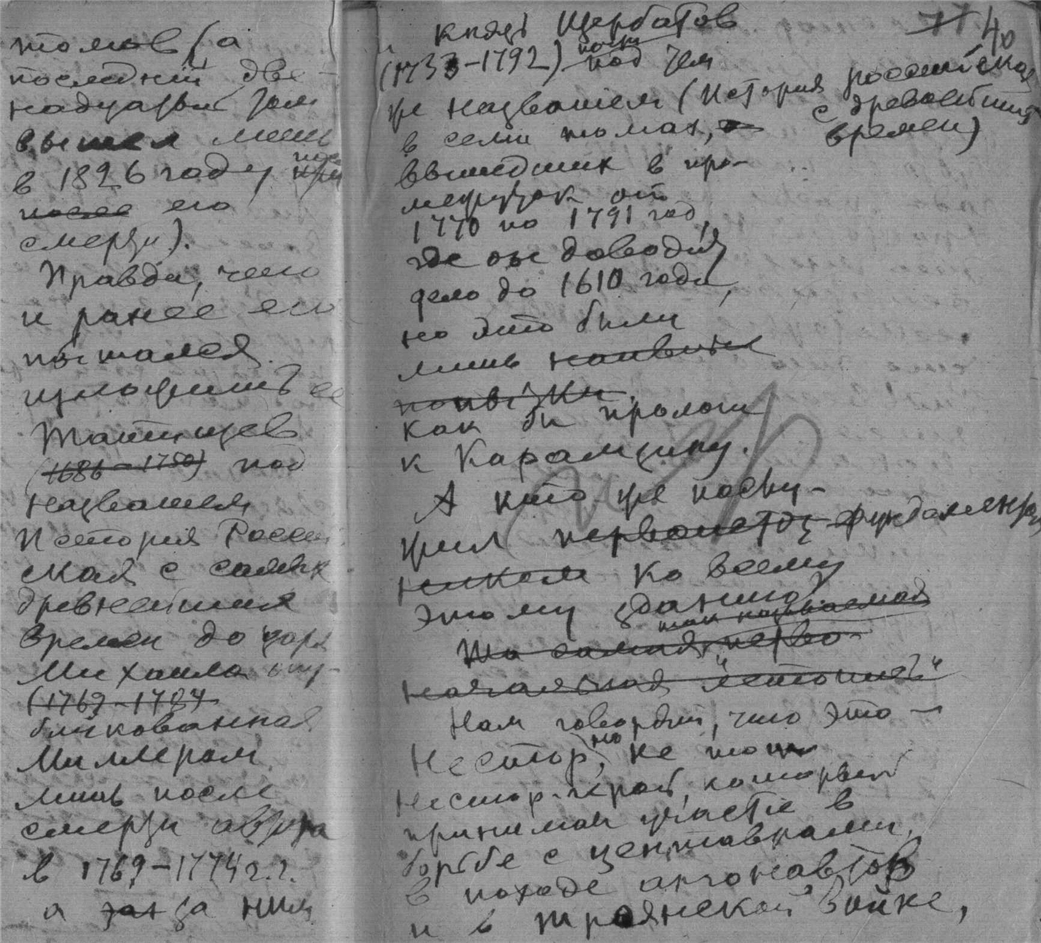 томов (а
последний две-
надцатый том
вышел лишь
в 1826 году уже
после его
смерти).
Правда, что
и ранее его
пытался
изложить ее
Татищев
(1686-1750) под
названием
История Россий
ская с самых
древнейших
времен до царя
Михаила опу-
(1769-1774
бликованная
Миллером
лишь после
смерти автора
в 1769-1774 г.г.
а за ним
40
князь Щербатов
(1733-1792) почти под тем
же названием (История российская
с древнейших
времен)
в семи томах,
вышедших в про-
межуток от
1770 по 1791 год,
где он доводил
дело до 1610 года,
но это были
лишь наивные
попытки
как бы пролог
к Карамзину.
А кто же послу-
жил фундамен
ко всему
этому зданию?
так называемая
Та самая перво-
начальная "летопись"
Нам говорят, что это -
Нестор, но не тот
Нестор-герой, который
принимал участие в
борьбе с центаврами,
в походе аргонавтов
и в троянской войне,